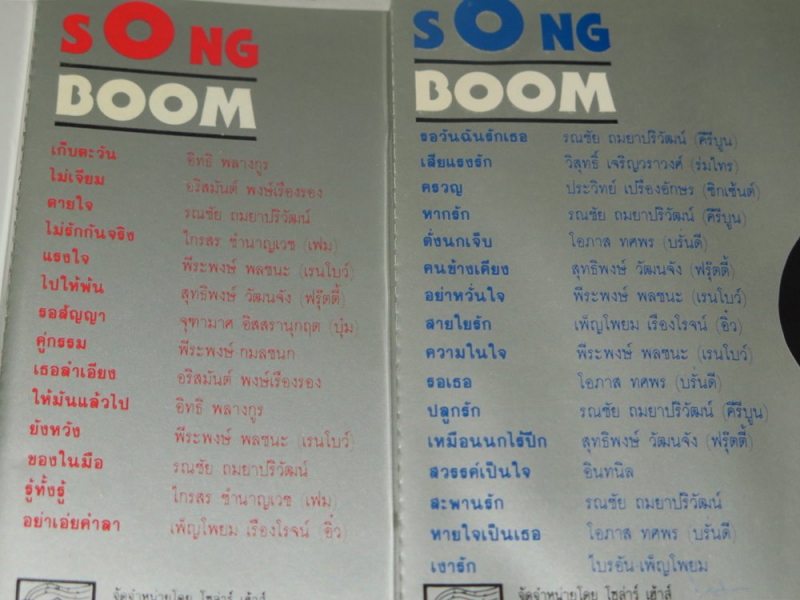 SONG
BOOM
เก็บตะวัน อิทธิ พลางกูร
ไม่เจียม อริสมันต์ พงษ์เรืองรอง
ตายใจ รณชัย ถมยาปริวัฒน์
ไม่รักกันจริง ไกรสร ชำนาญเวช (เฟม)
แรงใจ พีระพงษ์ พลชนะ (เรนโบว์)
ไปให้พ้น สุทธิพงษ์ วัฒนจัง (ฟรุ๊ตตี้)
รอสัญญา จุฑามาศ อิสสรานุกฤต (บุ๋ม)
คู่กรรม พีระพงษ์ กมลชนก
เธอลำเอียง อริสมันต์ พงษ์เรืองรอง
ให้มันแล้วไป อิทธิ พลางกูร
ยังหวัง พีระพงษ์ พลชนะ (เรนโบว์)
ของในมือ รณชัย ถมยาปริวัฒน์
รู้ทั้งรู้ ไกรสร ชำนาญเวช (เฟม)
อย่าเอ่ยคำลา เพ็ญโพยม เรืองโรจน์ (อิ๋ว)
จัดจำหน่ายโดย โซล่าร์ เฮ้าส์
SONG
BOOM
รอวันฉันรักเธอ รณชัย ถมยาปริวัฒน์ (คีรีบูน)
เสียแรงรัก วิสุทธิ์ เจริญวราวงศ์ (ร่มไทร)
ครวญ ประวิทย์ เปรื่องอักษร (ซิกเซ้นต์)
หากรัก รณชัย ถมยาปริวัฒน์ (คีรีบูน)
ดั่งนกเจ็บ โอภาส ทศพร (บรั่นดี)
คนข้างเคียง สุทธิพงษ์ วัฒนจัง (ฟรุ๊ตตี้)
อย่าหวั่นใจ พีระพงษ์ พลชนะ (เรนโบว์)
สายใยรัก เพ็ญโพยม เรืองโรจน์ (อิ๋ว)
ความในใจ พีระพงษ์ พลชนะ (เรนโบว์)
รอเธอ โอภาส ทศพร (บรั่นดี)
ปลูกรัก รณชัย ถมยาปริวัฒน์ (คีรีบูน)
เหมือนนกไร้ปีก สุทธิพงษ์ วัฒนจัง (ฟรุ๊ตตี้)
สวรรค์เป็นใจ อินทนิล
สะพานรัก รณชัย ถมยาปริวัฒน์
หายใจเป็นเธอ โอภาส ทศพร (บรั่นดี)
เงารัก ไบรอัน-เพ็ญโพยม
จัดจำหน่ายโดย โซล่าร์ เฮ้าส์